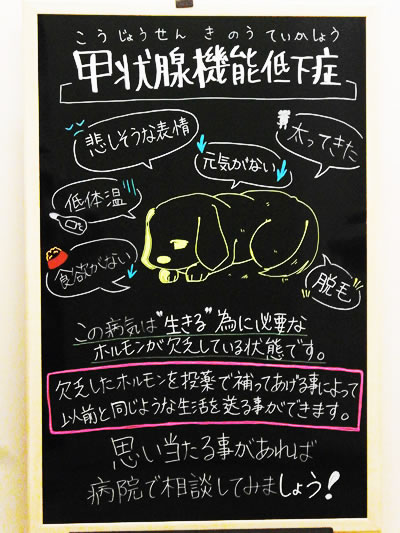 こうじょうせんきのうていかしょう
甲状腺機能低下症
悲しそうな表情
元気がない
太ってきた
低体温
食欲がない
脱毛
この病気は"生きる"為に必要な
ホルモンが欠乏している状態です。
欠乏したホルモンを投薬で補ってあげる事によって
以前と同じような生活を送る事ができます。
思い当たる事があれば
病院で相談してみましょう!